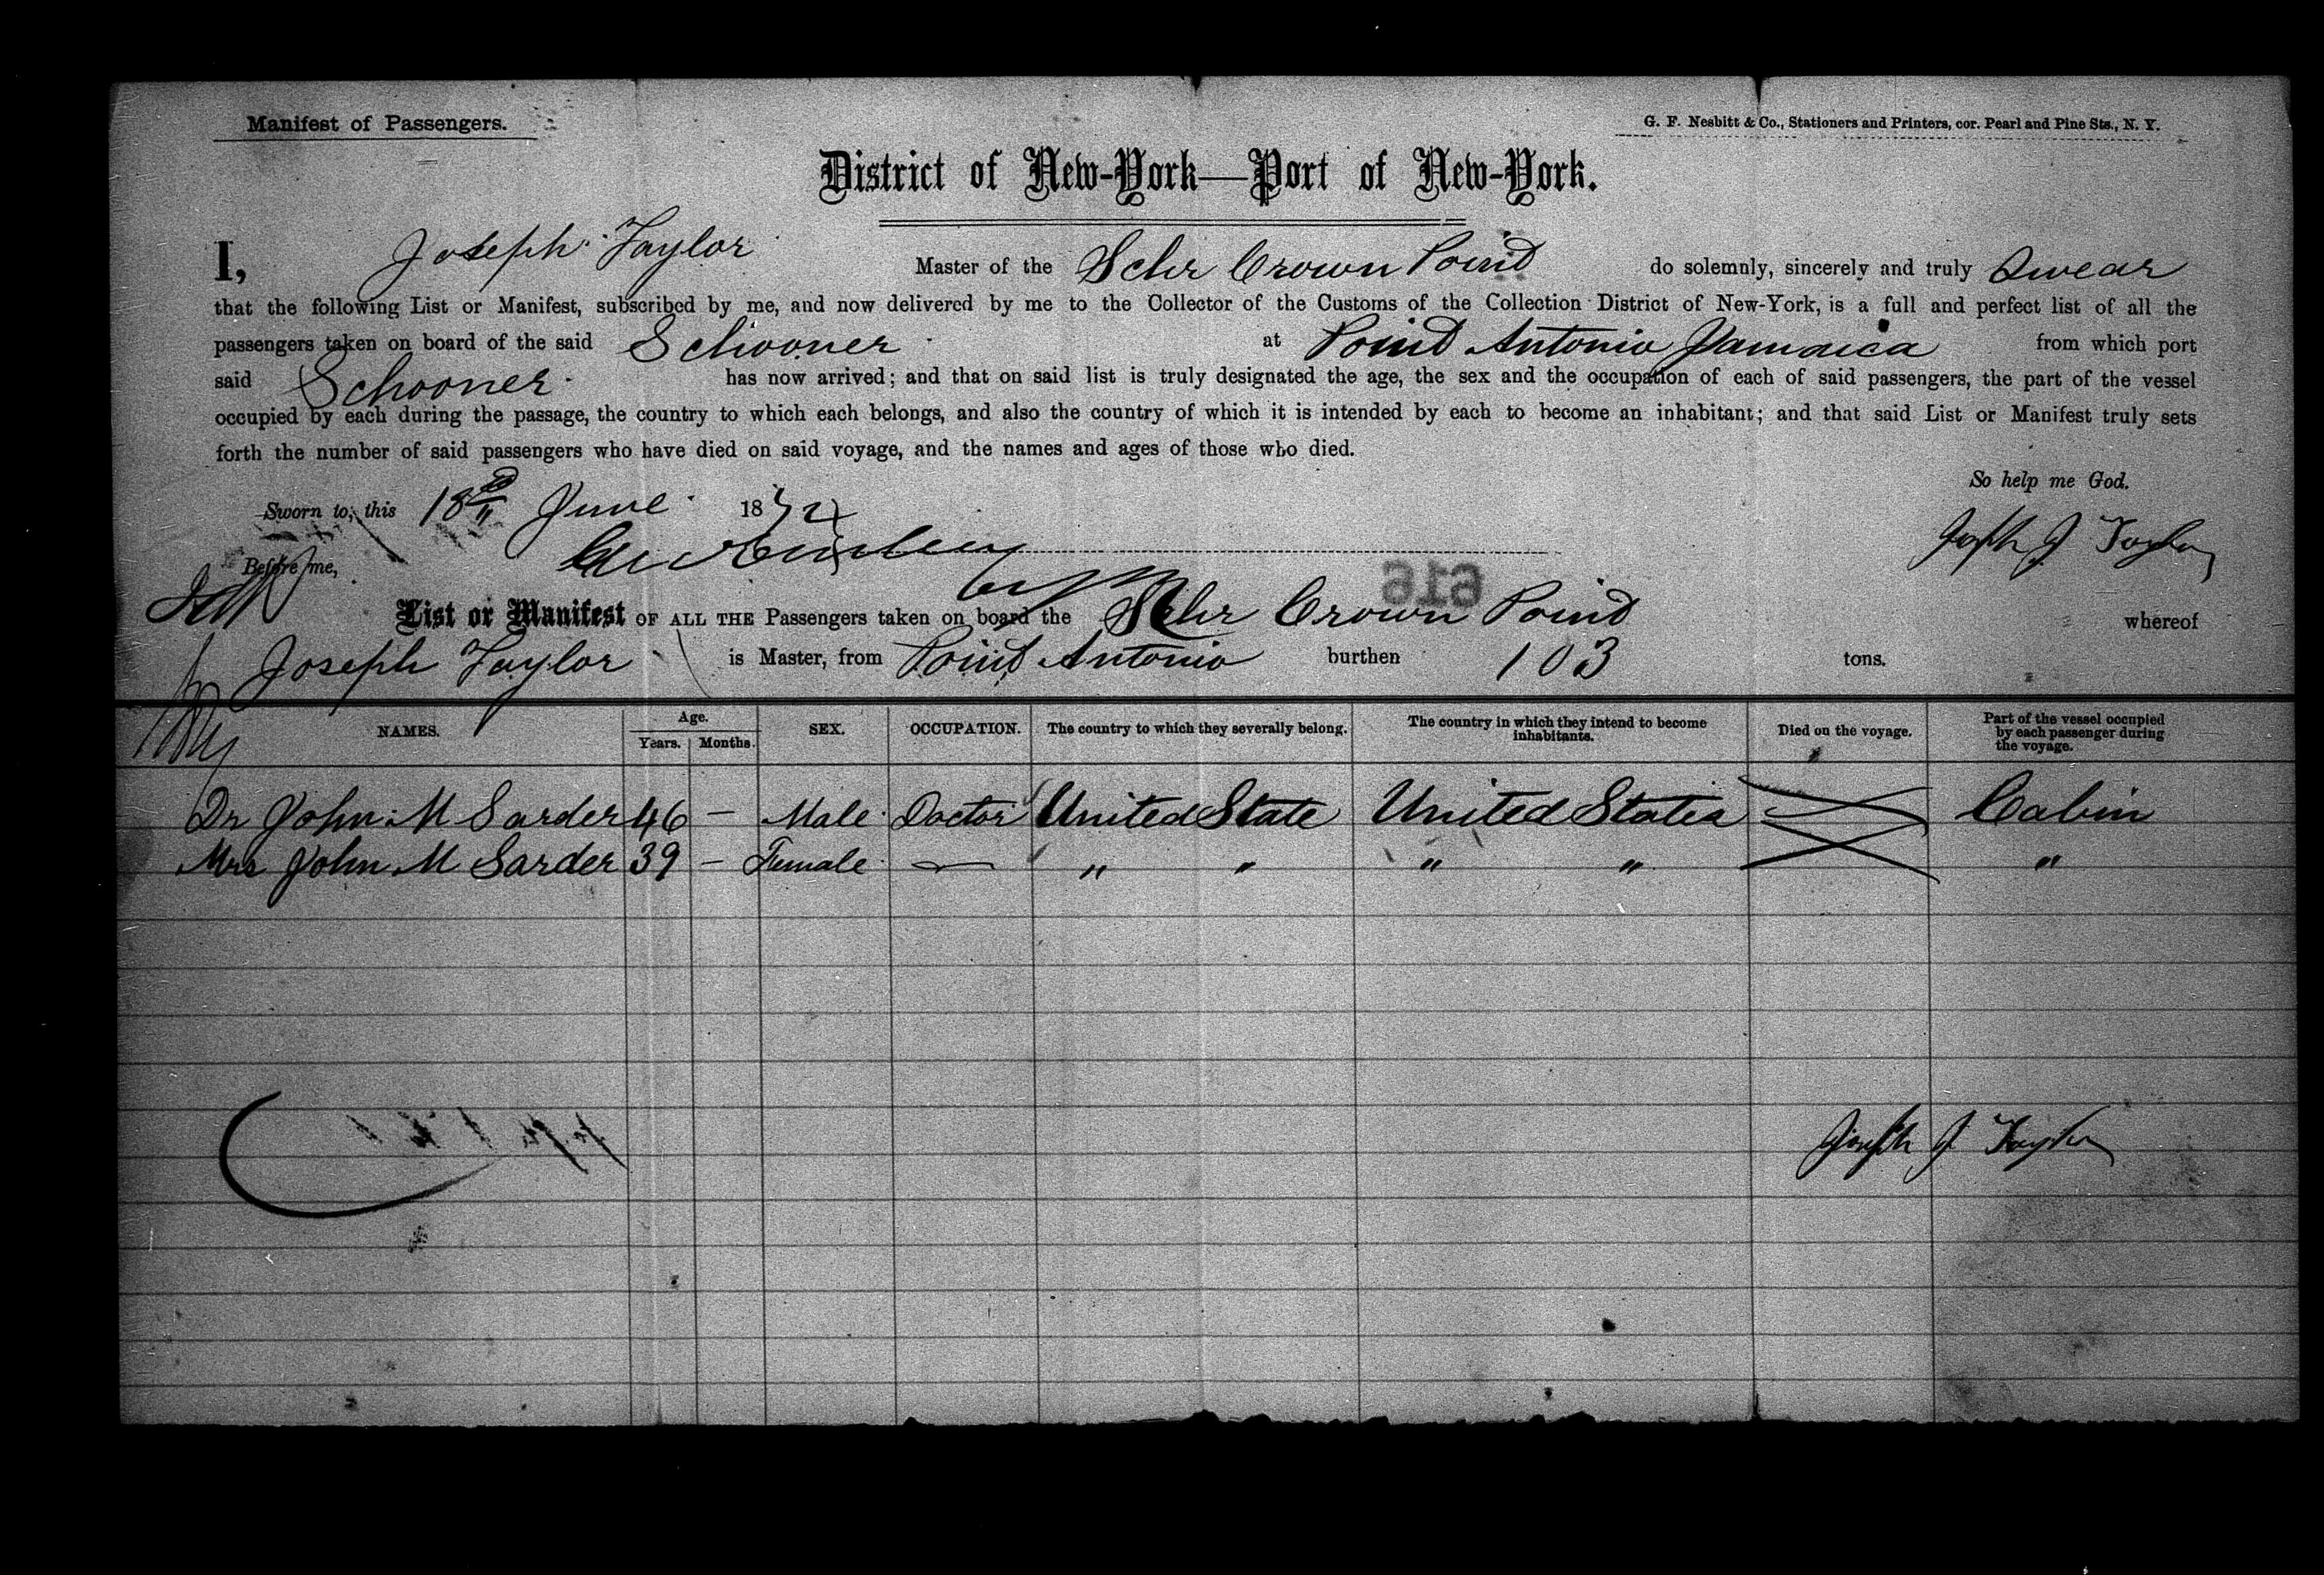 Manifest of Passengers.
G. F. Nesbitt & Co., Stationers and Printers, cor. Pearl and Pine Sts., N. Y.
District of New-York—Port of New-York.
I, Joseph Taylor Master of the Schr Crown Point do solemnly, sincerely and truly Swear
that the following List or Manifest, subscribed by me, and now delivered by me to the Collector of the Customs of the Collection District of New-York, is a full and perfect list of all the
passengers taken on board of the said Schooner at Point Antonio Jamaica from which port
said Schooner has now arrived; and that on said list is truly designated the age, the sex and the occupation of each of said passengers, the part of the vessel
occupied by each during the passage, the country to which each belongs, and also the country of which it is intended by each to become an inhabitant; and that said List or Manifest truly sets
forth the number of said passengers who have died on said voyage, and the names and ages of those who died.
So help me God.
Sworn to, this 18th June 1872
Joseph J Taylor
Before me,
616
List or Manifest OF ALL THE Passengers taken on board the Schr Crown Point whereof
Joseph Taylor is Master, from Point Antonio burthen 103 tons.
NAMES. Age. Years. Months. SEX. OCCUPATION. The country to which they severally belong. The country in which they intend to become inhabitants. Died on the voyage. Part of the vessel occupied by each passenger during the voyage.
Dr John M Sarder 46 — Male Doctor United State United States Cabin
Mrs John M Sarder 39 — Female — " " " " "
Joseph J Taylor